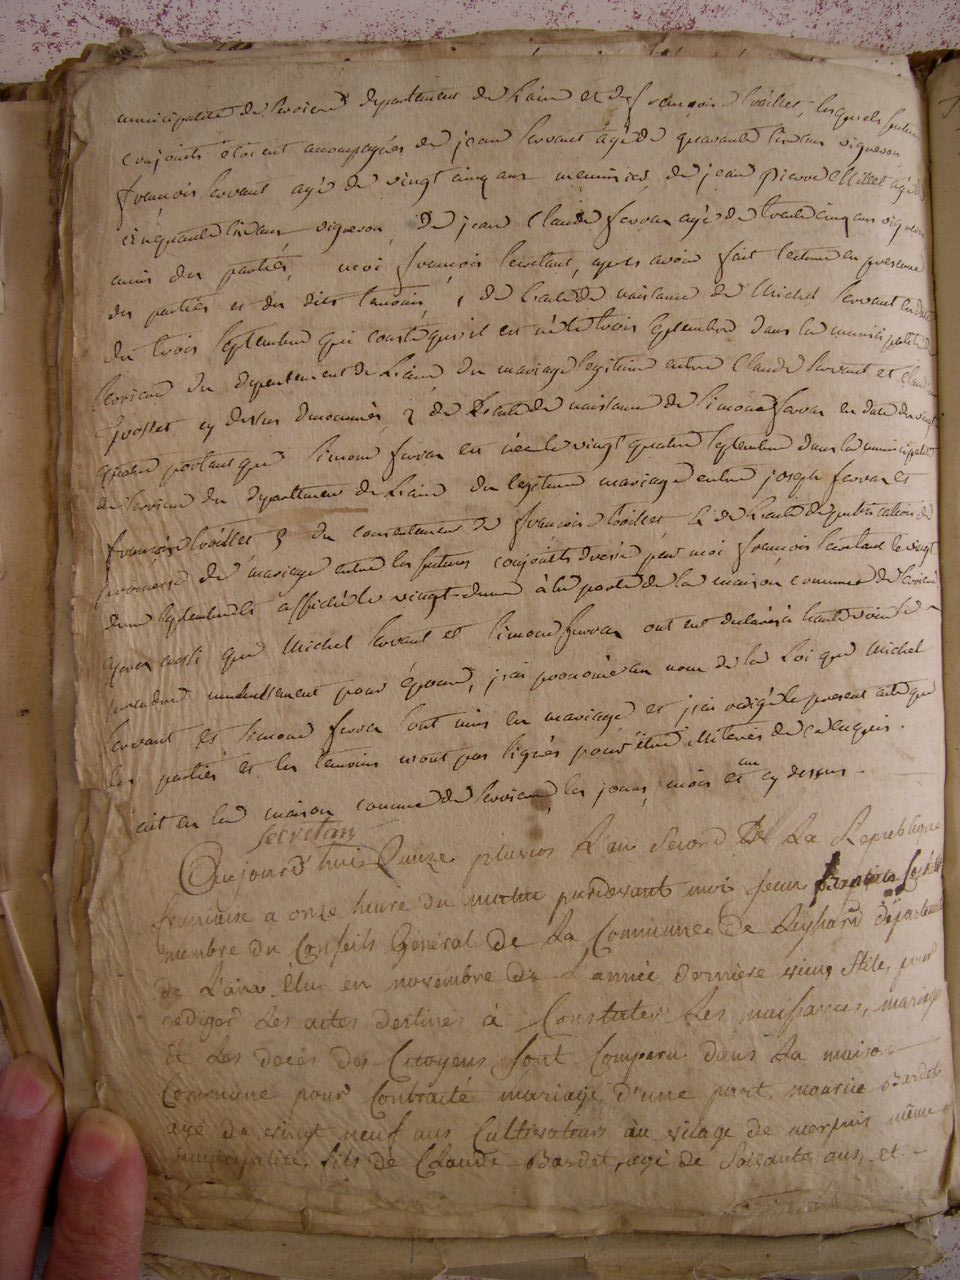 municipalité de Serrieres departement de Lain et de françoise Voillet, lesquels futurs
conjoints étoient accompagnés de jean Servant agé de quarante six ans vigneron
françois Servant agé de vingt cinq ans menuisier, de jean pierre Millet agé de
cinquante six ans vigneron, de jean Claude ferran agé de trente cinq ans vigneron
amis des partiés, moi françois Secretant, apres avoir fait lecture en presence
des partiés et des dits temoins, de Lacte de naissance de Michel Servant en date
du trois Septembre qui conste qu'il est né le trois Septembre dans la municipalité de
Serriere du departement de Lain du mariage legitime entre Claude Servant et
Grosset cy dessus denommés, de Lacte de naissance de Simone ferran en date du vingt
quatre portant que Simone ferran est née le vingt quatre Septembre dans la municipalité
de Serriere du departement de Lain du legitime mariage entre joseph ferran et
françoise Voillet, du consentement de françoise Voillet & de Lacte de publication de
promesse de mariage entre les futurs conjoints dressé par moi françois Secretant le vingt
deux Septembre et affiché le vingt deux à la porte de la maison commune de Serriere
apres aussi que Michel Servant et Simone ferran ont eut declaré à haute voix se
prendre mutuellement pour époux, j'ai prononcé au nom de la Loi que Michel
Servant et Simone ferran sont unis en mariage et j'ai redigé le present acte que
les partiés et les temoins n'ont pas signés pour être illiterés de ce enquis.
fait en la maison commune de Serriere, les jours, mois et an cy dessus.
Secretan
Aujourd'huis quinze pluvios L'an Second De La Republique
francaise a onze heure du matin pardevant moi jean françois
membre du Conseils Général de La Commune de Leyssard departement
de L'ain Elus en novembre de L'année derniere vieux Stile, pour
rediger Les actes destinés à Constater Les naissances, mariages
et Les decés des Citoyens Sont Comparu dans La maison
Commune pour Contracté mariage d'une part, mourice Bardet
agé de vingt neuf ans Cultivateurs au vilage de même
municipalité, fils de Claude Bardet agé de Soixante ans, et